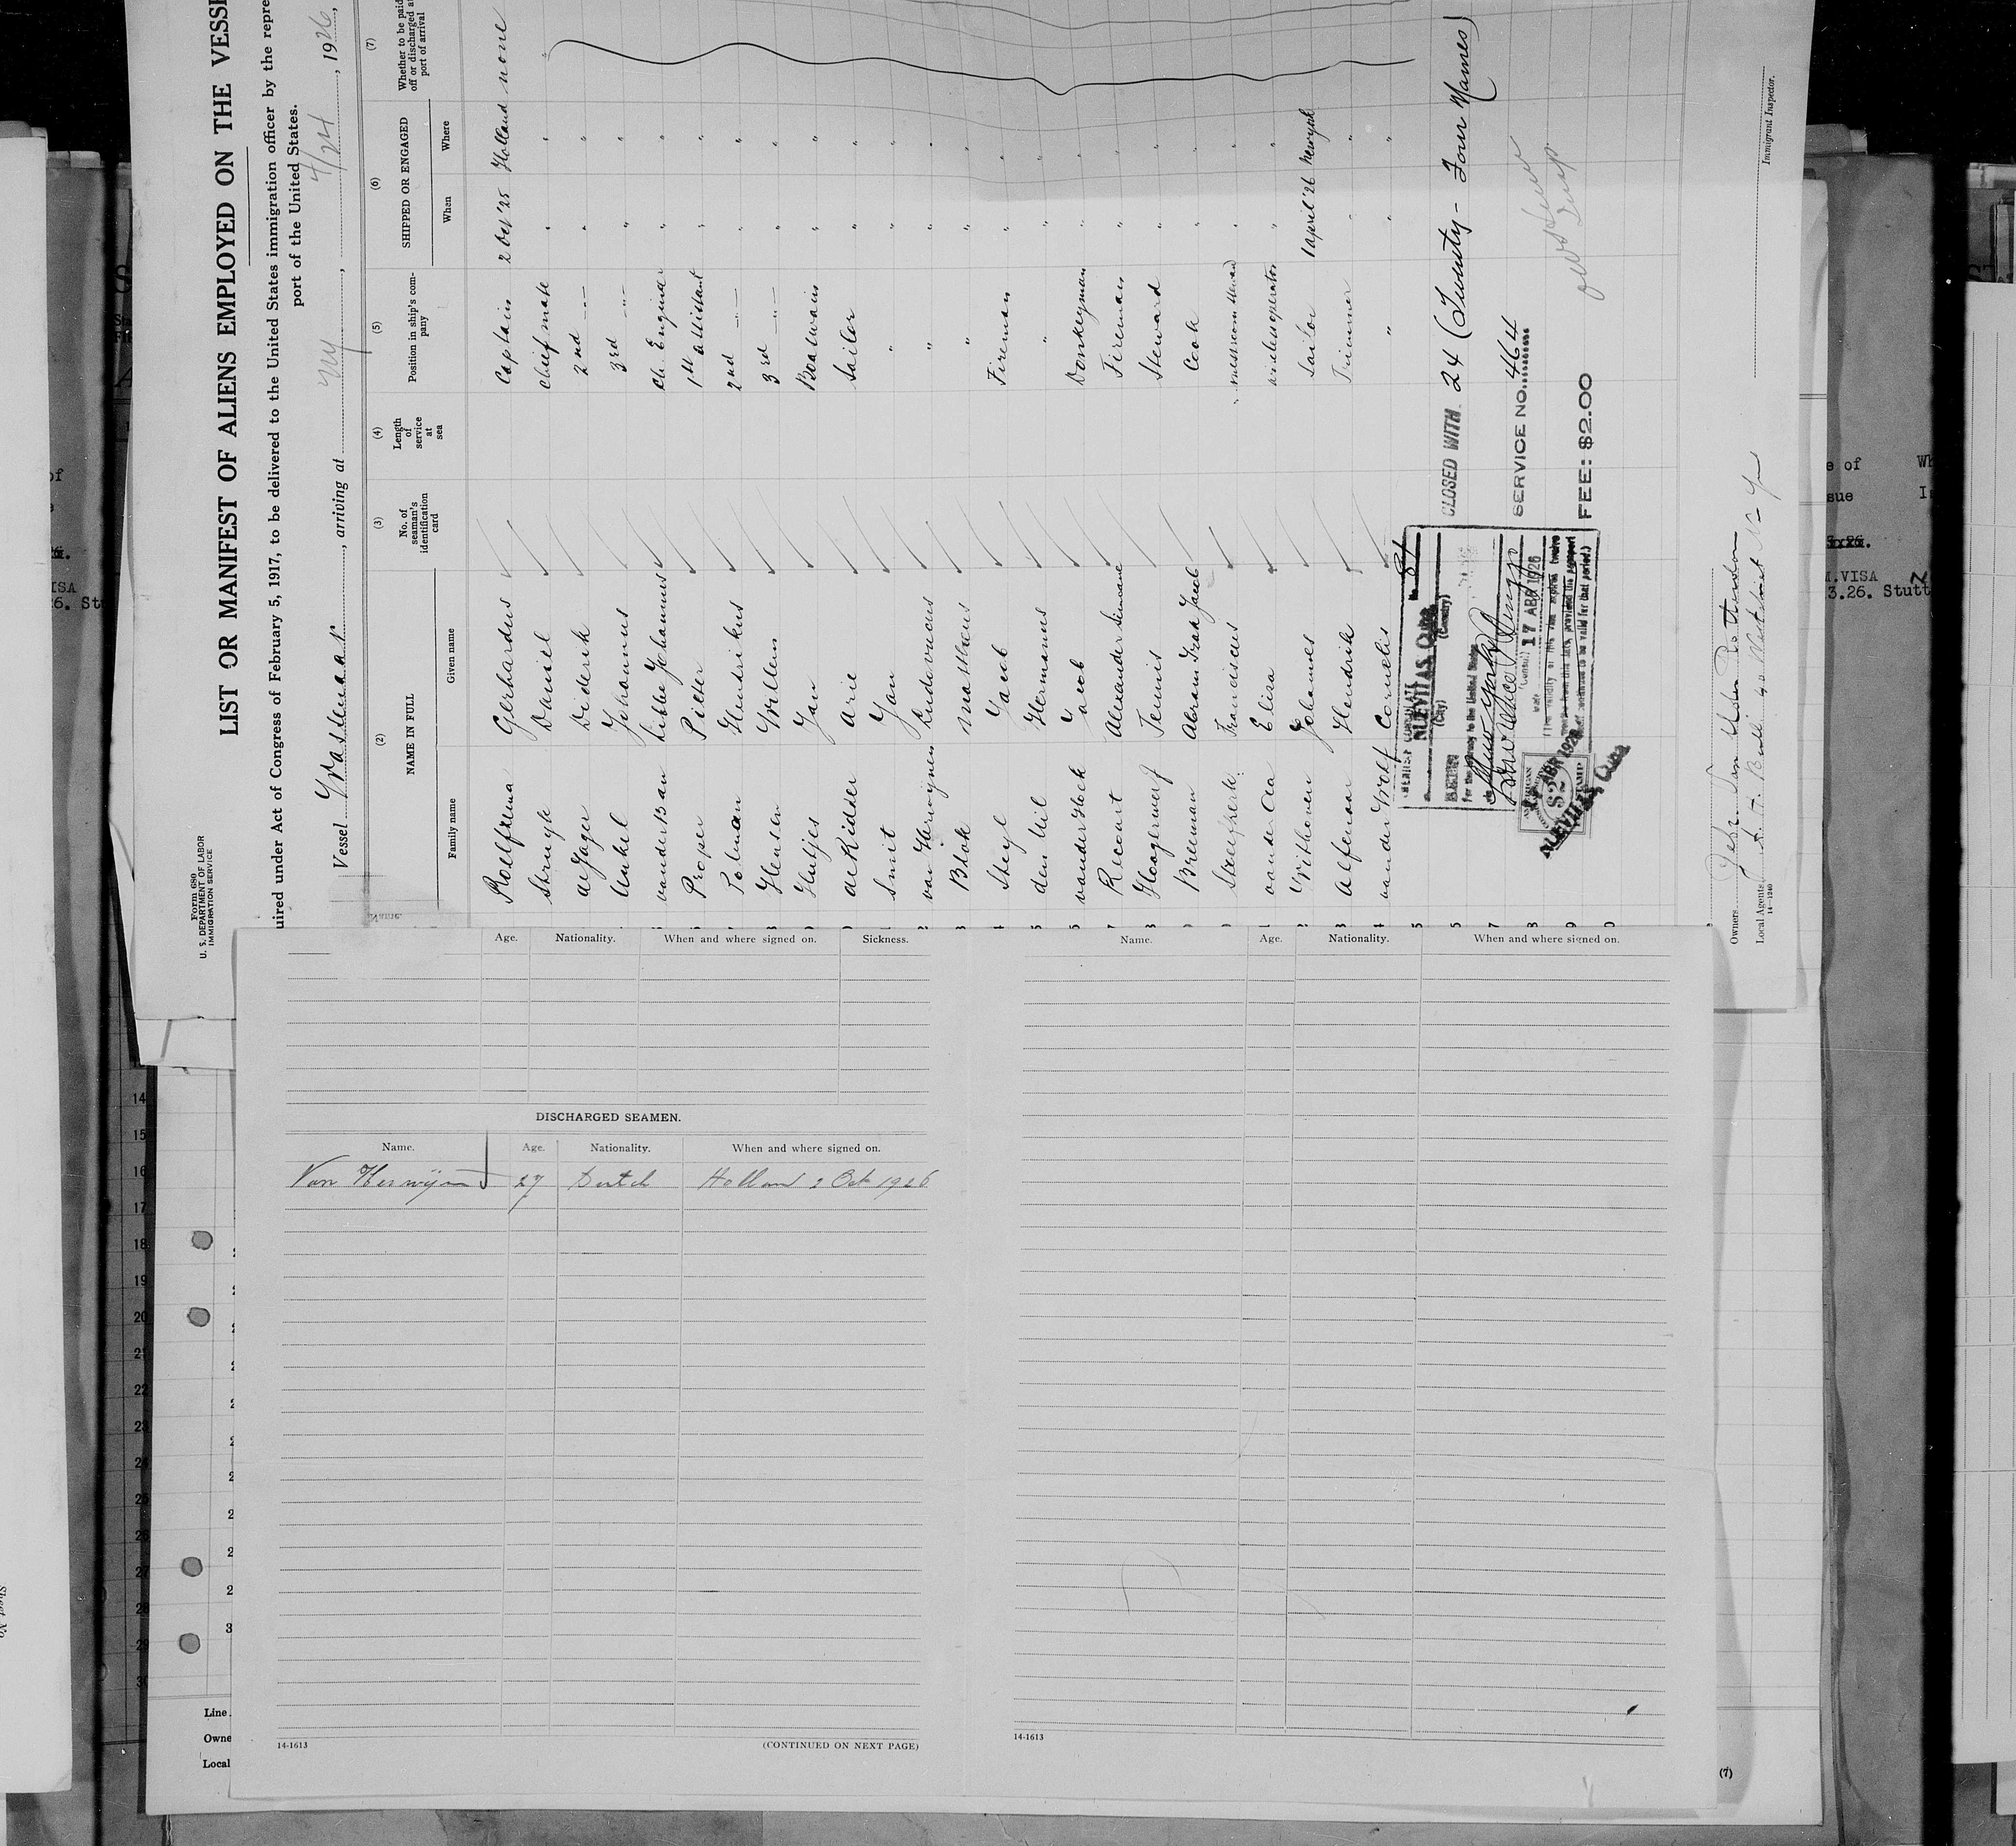 Form 680
U. S. DEPARTMENT OF LABOR
IMMIGRATION SERVICE
LIST OR MANIFEST OF ALIENS EMPLOYED ON THE VESSE
uired under Act of Congress of February 5, 1917, to be delivered to the United States immigration officer by the repre
port of the United States.
Vessel, arriving at NY, 4/24, 1926,
(2) (3) (4) (5) (6) (7)
NAME IN FULL No. of seaman's identification card Length of service at sea Position in ship's company SHIPPED OR ENGAGED Whether to be paid off or discharged at port of arrival
Family name Given name When Where
Gerhardus Captain 2 Oct '25 Holland none
Struyk Daniel Chief mate " " "
de Jager Diderik 2nd -"- " "
Unkel Johannus 3rd -"- " "
Johannus Ch. Engineer " "
Proper Pieter 1st assistant " "
Polman Hendrikus 2nd -"- " "
Hensen Willem 3rd -"- " "
Hutjes Jan Boatswain " "
de Ridder Arie Sailor " "
Smit Jan " " "
van Herwijnen Ludovicus " " "
Blok Mattheus " " "
Steyl Jacob Fireman " "
den Uil Hermanus " " "
van der Hoek Jacob Donkeyman " "
Recourt Alexander Fireman " "
Hoogerwerf Teunis Steward " "
Breeman Abram Izak Jacob Cook " "
Franciscus messroom " "
van der Aa Eliza " "
Withoven Johannes Sailor 1 april '26 Newyork
Alfenaar Hendrik Trimmer " "
van der Wolf Cornelis " " "
CLOSED WITH 24 (Twenty-Four Names)
NUEVITAS, Cuba
(City) (Country)
SEEN
For the journey to the United States
New York
17 ABR 1926
SERVICE NO. 464
FEE: $2.00
$2
NUEVITAS, Cuba
Immigrant Inspector.
Owners
Local Agents
14—1240
Name.
Age. Nationality. When and where signed on. Sickness.
Name. Age. Nationality. When and where signed on.
DISCHARGED SEAMEN.
Name. Age. Nationality. When and where signed on.
Van Herwijnen 27 Dutch Holland 2 Oct 1926
14-1613 (CONTINUED ON NEXT PAGE)
14-1613
14
15
16
17
18
19
20
21
22
23
24
25
26
27
28
29
30
Line
Owne
Local
(7)
e of
sue
.VISA
3.26. Stutt